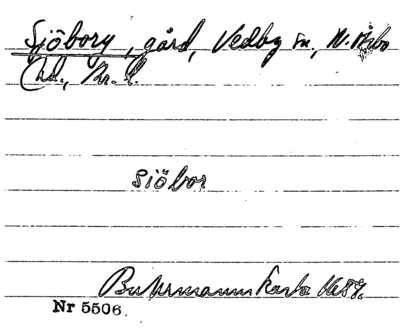 Sjöborg, gård, Vedby sn., N. Åsbo
hd., Kr. l.
Siöbor
Buhrmanns karta 1684.
Nr 5506.